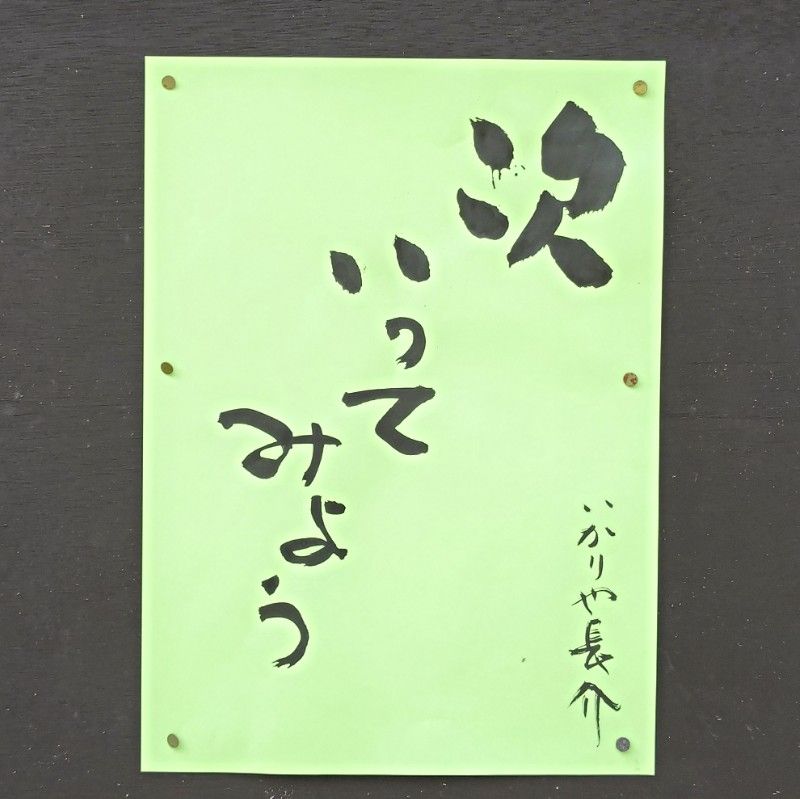 次
いって
みよう
いかりや長介